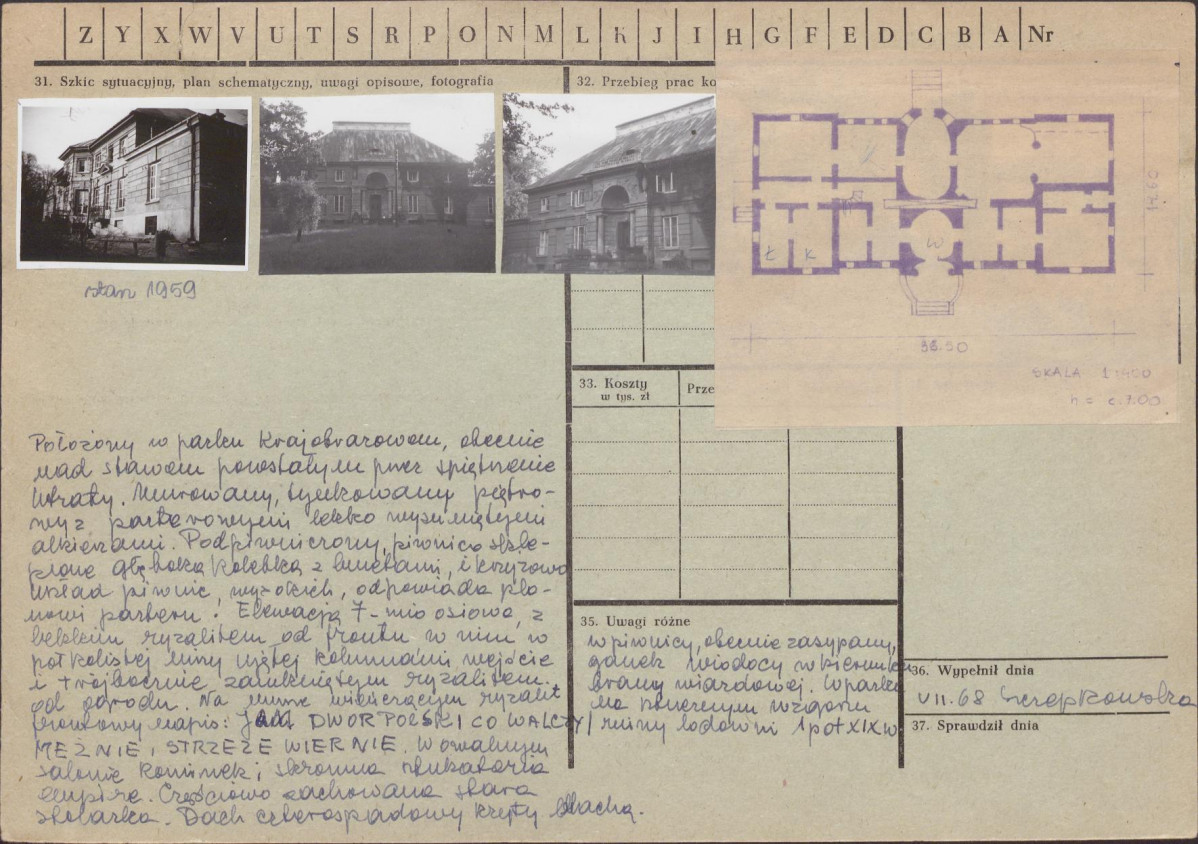 Z Y X W V U T S R P O N M L K J I H G F E D C B A Nr
31. Szkic sytuacyjny, plan schematyczny, uwagi opisowe, fotografia
32. Przebieg prac ko
stan 1959
Ł K W
14.60
36.50
SKALA 1:400
h = c. 7.00
33. Koszty
w tys. zł
Prze
Położony w parku krajobrazowem, obecnie
nad stawem powstałym przez spiętrzenie
Utraty. Murowany, tynkowany piętro-
wy z parterowymi lekko wysuniętymi
alkierzami. Podpiwniczony, piwnice skle-
pione głęboką kolebką z lunetami, i krzyżowo
układ piwnic, wysokich, odpowiada pla-
nowi parteru. Elewacja 7-mio osiowa, z
lekkim ryzalitem od frontu w nim w
półkolistej niszy ujętej kolumnami wejście
i trójbocznie zamkniętym ryzalitem
od ogrodu. Na murze wieńczącym ryzalit
frontowy napis: JAM DWÓR POLSKI CO WALCZY
MĘŻNIE I STRZEŻE WIERNIE. W owalnym
salonie kominek i skromna sztukateria
empire. Częściowo zachowana stara
stolarka. Dach czterospadowy kryty blachą.
35. Uwagi różne
w piwnicy, obecnie zasypany,
ganek wiodący w kierunku
bramy wjazdowej. W parku
na wzgórzu
ruiny lodowni 1 poł XIX w.
36. Wypełnił dnia
VII. 68
37. Sprawdził dnia